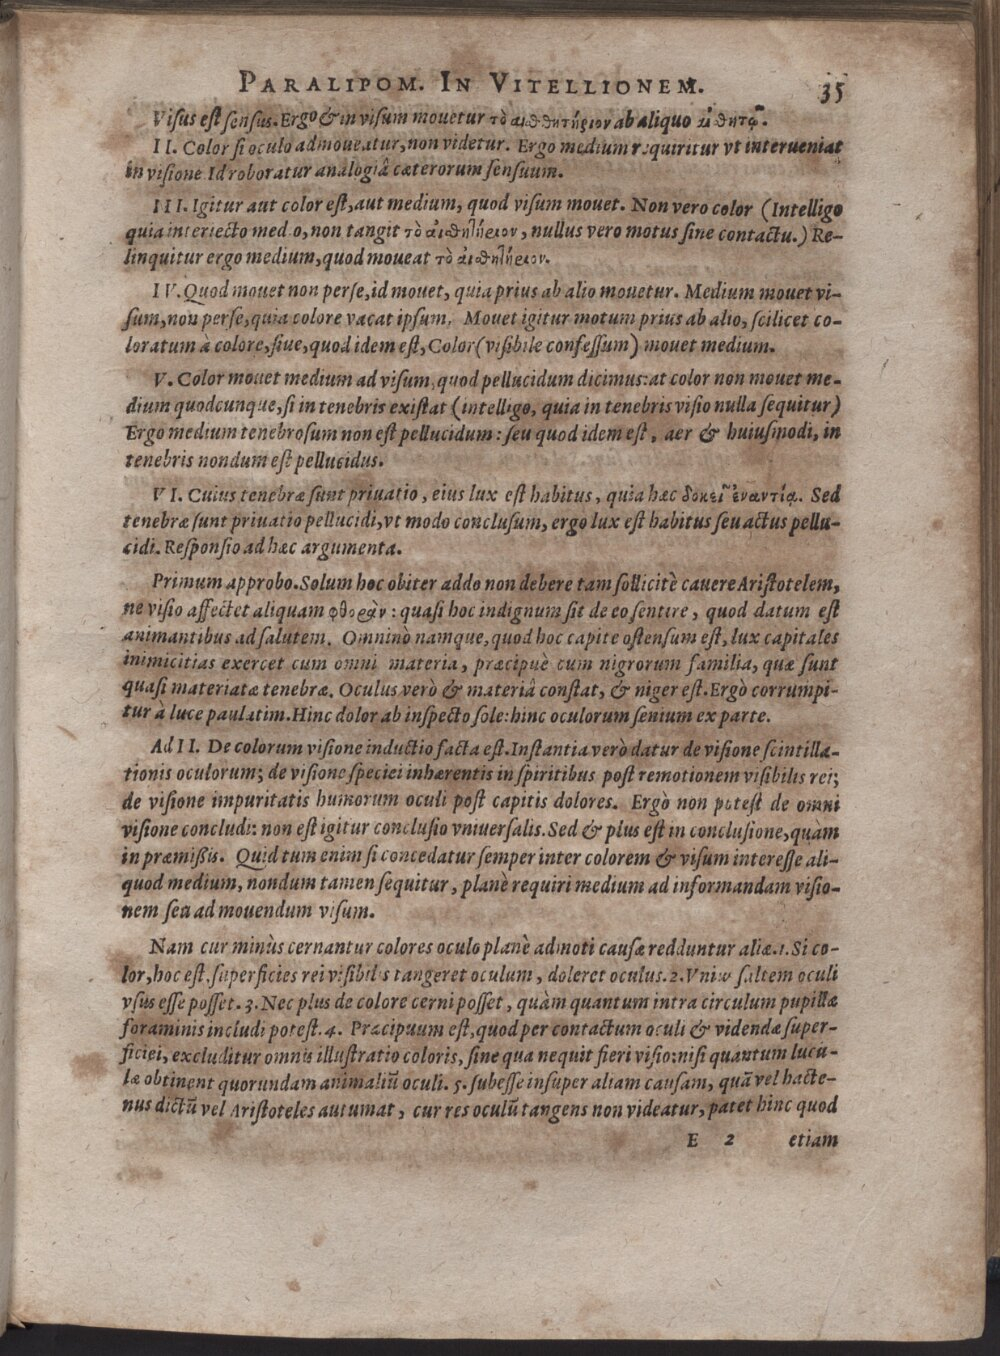 PARALIPOM. IN VITELLIONEM. 35
Viſus eſt ſenſus. Ergo & in viſum mouetur τὸ αἰϑϑητήριον ab aliquo αἰϑητῷ.
II. Color ſi oculo admoueatur, non videtur. Ergo medium requiritur vt interueniat
in viſione Id roboratur analogiâ cæterorum ſenſuum.
III. Igitur aut color eſt, aut medium, quod viſum mouet. Non vero color (Intelligo
quia interiecto medio, non tangit τὸ αἰϑητήριον, nullus vero motus ſine contactu.) Re-
linquitur ergo medium, quod moueat τὸ αἰϑητήριον.
IV. Quod mouet non per ſe, id mouet, quia prius ab alio mouetur. Medium mouet vi-
ſum, non per ſe, quia colore vacat ipſum. Mouet igitur motum prius ab alio, ſcilicet co-
loratum à colore, ſiue, quod idem eſt, Color (viſibile confeſſum) mouet medium.
V. Color mouet medium ad viſum, quod pellucidum dicimus: at color non mouet me-
dium quodcunque, ſi in tenebris exiſtat (intelligo, quia in tenebris viſio nulla ſequitur)
Ergo medium tenebroſum non eſt pellucidum: ſeu quod idem eſt, aer & huiuſmodi, in
tenebris nondum eſt pellucidus.
VI. Cuius tenebræ ſunt priuatio, eius lux eſt habitus, quia hæc δοκεῖ ἐναντία. Sed
tenebræ ſunt priuatio pellucidi, vt modo concluſum, ergo lux eſt habitus ſeu actus pellu-
cidi. Reſponſio ad hæc argumenta.
Primum approbo. Solum hoc obiter addo non debere tam ſollicitè cauere Ariſtotelem,
ne viſio affectet aliquam φθορὰν: quaſi hoc indignum ſit de eo ſentire, quod datum eſt
animantibus ad ſalutem. Omnino namque, quod hoc capite oſtenſum eſt, lux capitales
inimicitias exercet cum omni materia, præcipuè cum nigrorum familia, quæ ſunt
quaſi materiatæ tenebræ. Oculus verò & materiâ conſtat, & niger eſt. Ergò corrumpi-
tur à luce paulatim. Hinc dolor ab inſpecto ſole: hinc oculorum ſenium ex parte.
Ad II. De colorum viſione inductio facta eſt. Inſtantia verò datur de viſione ſcintilla-
tionis oculorum; de viſione ſpeciei inhærentis in ſpiritibus poſt remotionem viſibilis rei;
de viſione impuritatis humorum oculi poſt capitis dolores. Ergò non poteſt de omni
viſione concludi: non eſt igitur concluſio vniuerſalis. Sed & plus eſt in concluſione, quàm
in præmißis. Quid tum enim ſi concedatur ſemper inter colorem & viſum intereſſe ali-
quod medium, nondum tamen ſequitur, planè requiri medium ad informandam viſio-
nem ſeu ad mouendum viſum.
Nam cur minùs cernantur colores oculo planè admoti cauſæ redduntur aliæ. 1. Si co-
lor, hoc eſt, ſuperficies rei viſibilis tangeret oculum, doleret oculus. 2. Vnius ſaltem oculi
vſus eſſe poſſet. 3. Nec plus de colore cerni poſſet, quàm quantum intra circulum pupillæ
foraminis includi poteſt. 4. Præcipuum eſt, quod per contactum oculi & videndæ ſuper-
ficiei, excluditur omnis illuſtratio coloris, ſine qua nequit fieri viſio: niſi quantum lucu-
læ obtinent quorundam animaliũ oculi. 5. ſubeſſe inſuper aliam cauſam, quã vel hacte-
nus dictũ vel Ariſtoteles autumat, cur res oculũ tangens non videatur, patet hinc quod
E 2 etiam